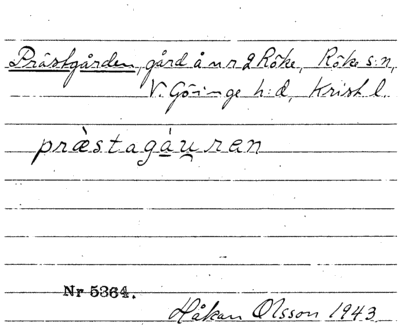 Prästgården, gård å n r 2 Röke, Röke s:n,
V. Göinge h:d, Krist l.
præ̀stagáu̯ren
Nr 5364.
Håkan Olsson 1943